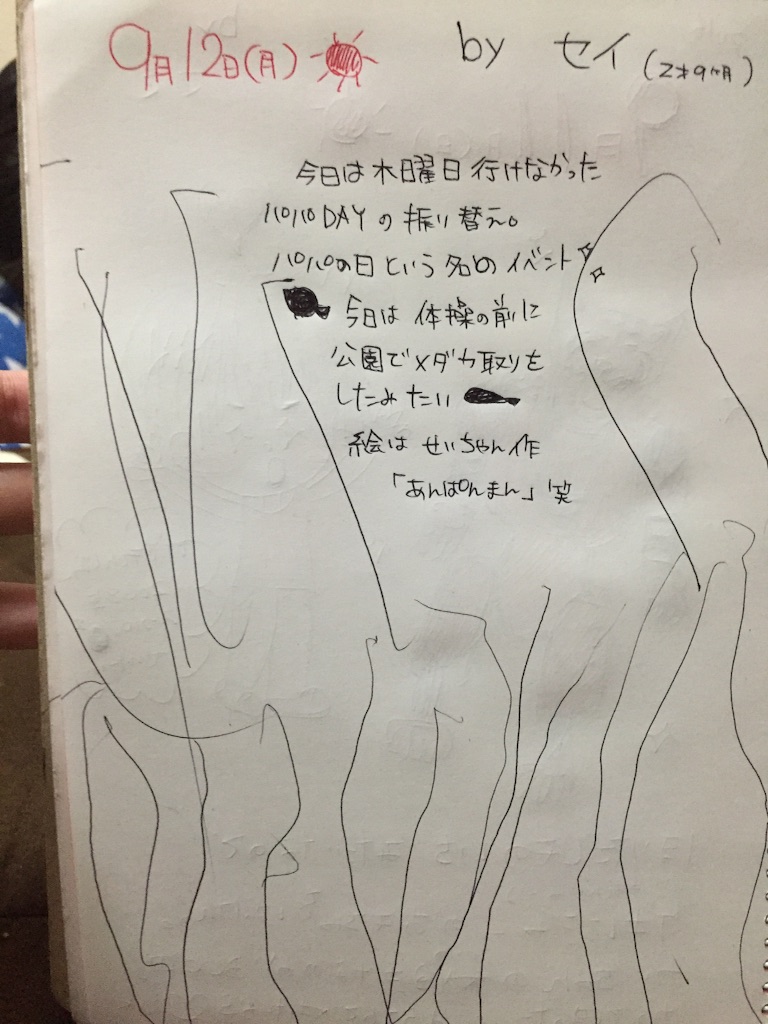 9月12日(月) by セイ (2才9ヶ月)
今日は木曜日行けなかった
パパDAYの振り替え。
パパの日という名のイベント
今日は体操の前に
公園でメダカ取りを
したみたい
絵はせいちゃん作
「あんぱんまん」笑